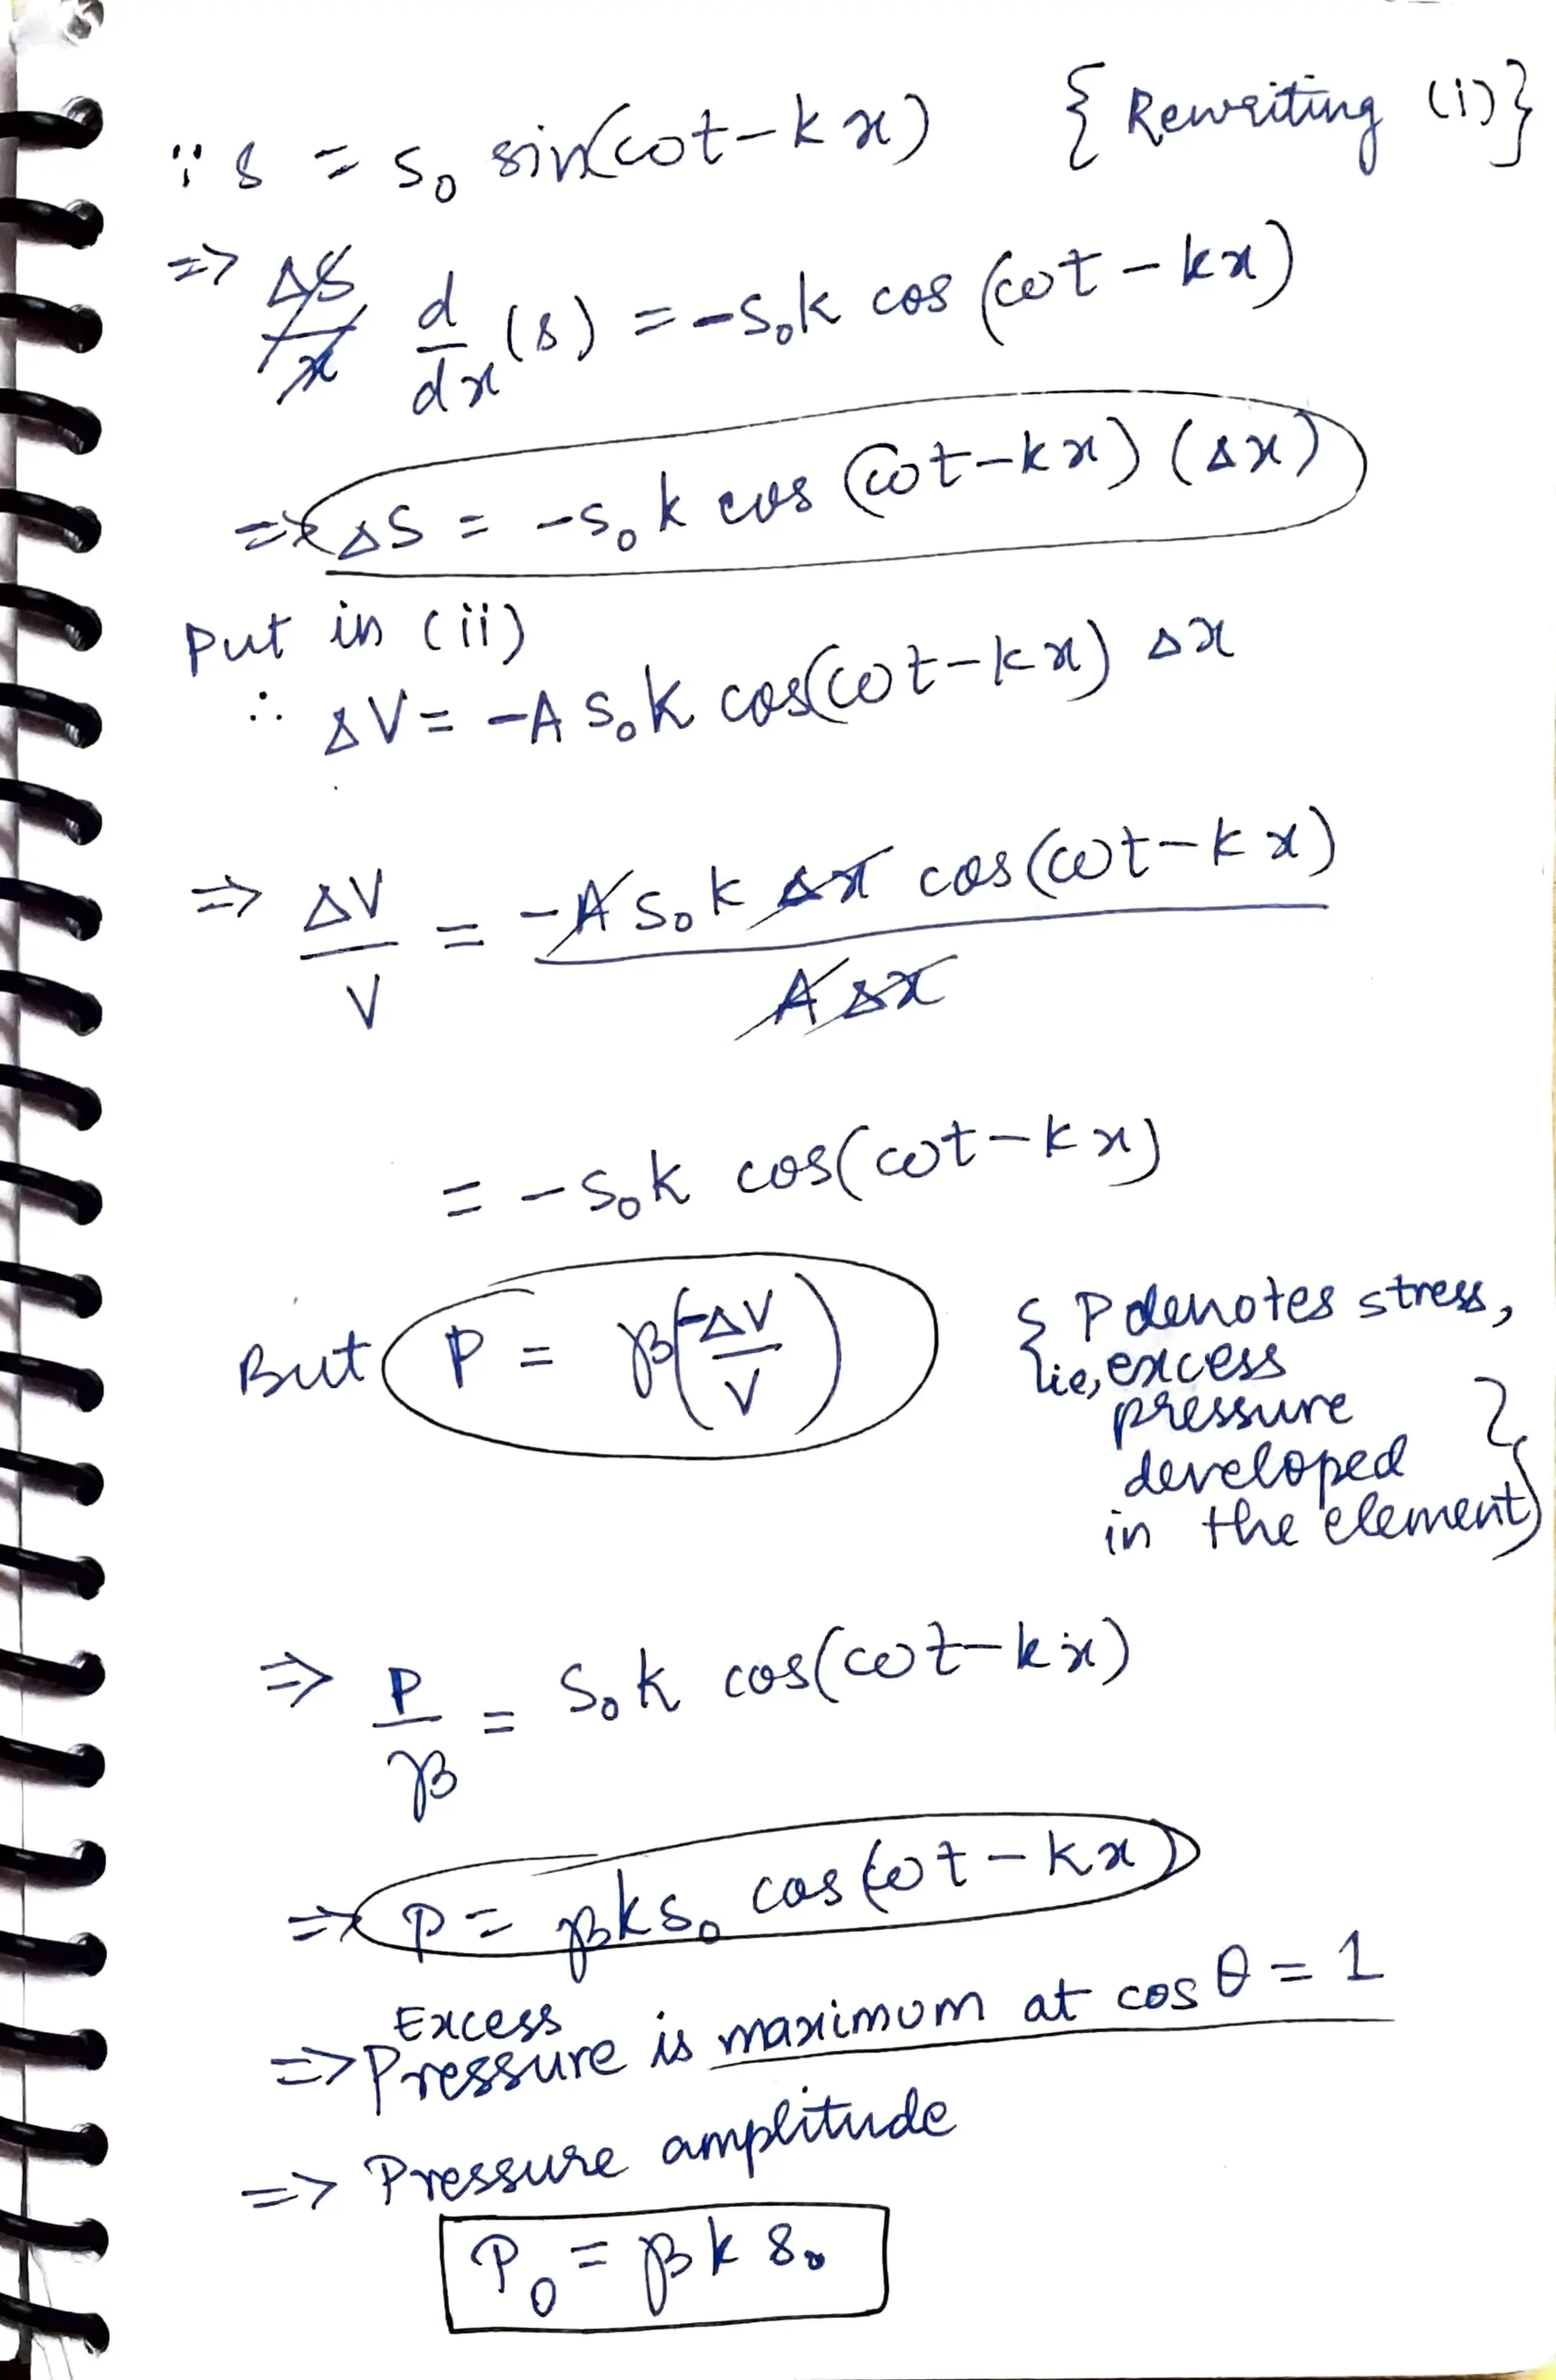 ∵ s = s₀ sin(ωt-kx) { Rewriting (i)}
=> Δs/x d/dx (s) = -s₀k cos (ωt-kx)
=> Δs = -s₀k cos (ωt-kx) (Δx)
Put in (ii)
∴ ΔV = -A s₀k cos(ωt-kx) Δx
=> ΔV/V = -A s₀ k Δx cos(ωt-kx) / A Δx
= -s₀k cos(ωt-kx)
But P = β(-ΔV/V) { P denotes stress,
ie, excess
pressure
developed
in the element }
=> P/β = s₀k cos(ωt-kx)
=> P = βks₀ cos(ωt-kx)
Excess
=> Pressure is maximum at cos θ = 1
=> Pressure amplitude
P₀ = βk s₀